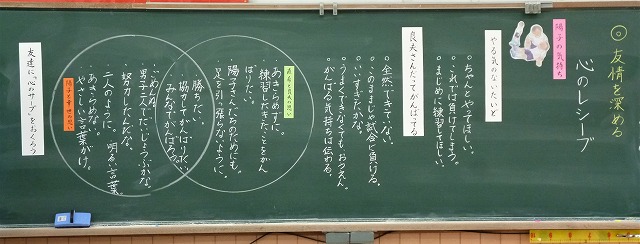 ◎友情を深める
心のレシーブ
陽子の気持ち
やる気のないたいど
・ちゃんとやってほしい。
・これでは負けてしまう。
・まじめに練習してほしい。
良夫さんだってがんばってる
・全然できていない。
・このままじゃ試合に負ける。
・いいすぎたかな。
・うまくできなくても、おうえん。
・がんばる気持ちは伝わる。
あきらめずに。
練習したきたことをがん
ばりたい。
陽子さんたちのためにも。
足を引っ張らないように。
勝ちたい。
協力してがんばりたい。
みんなでがんばろう。
・ごめんね。
男子二人にだいじょうぶかな。
努力したんだな。
・二人のように。明るい言葉。
・あきらめない。
やさしい言葉がけ。
友達に「心のサーブ」をおくろう